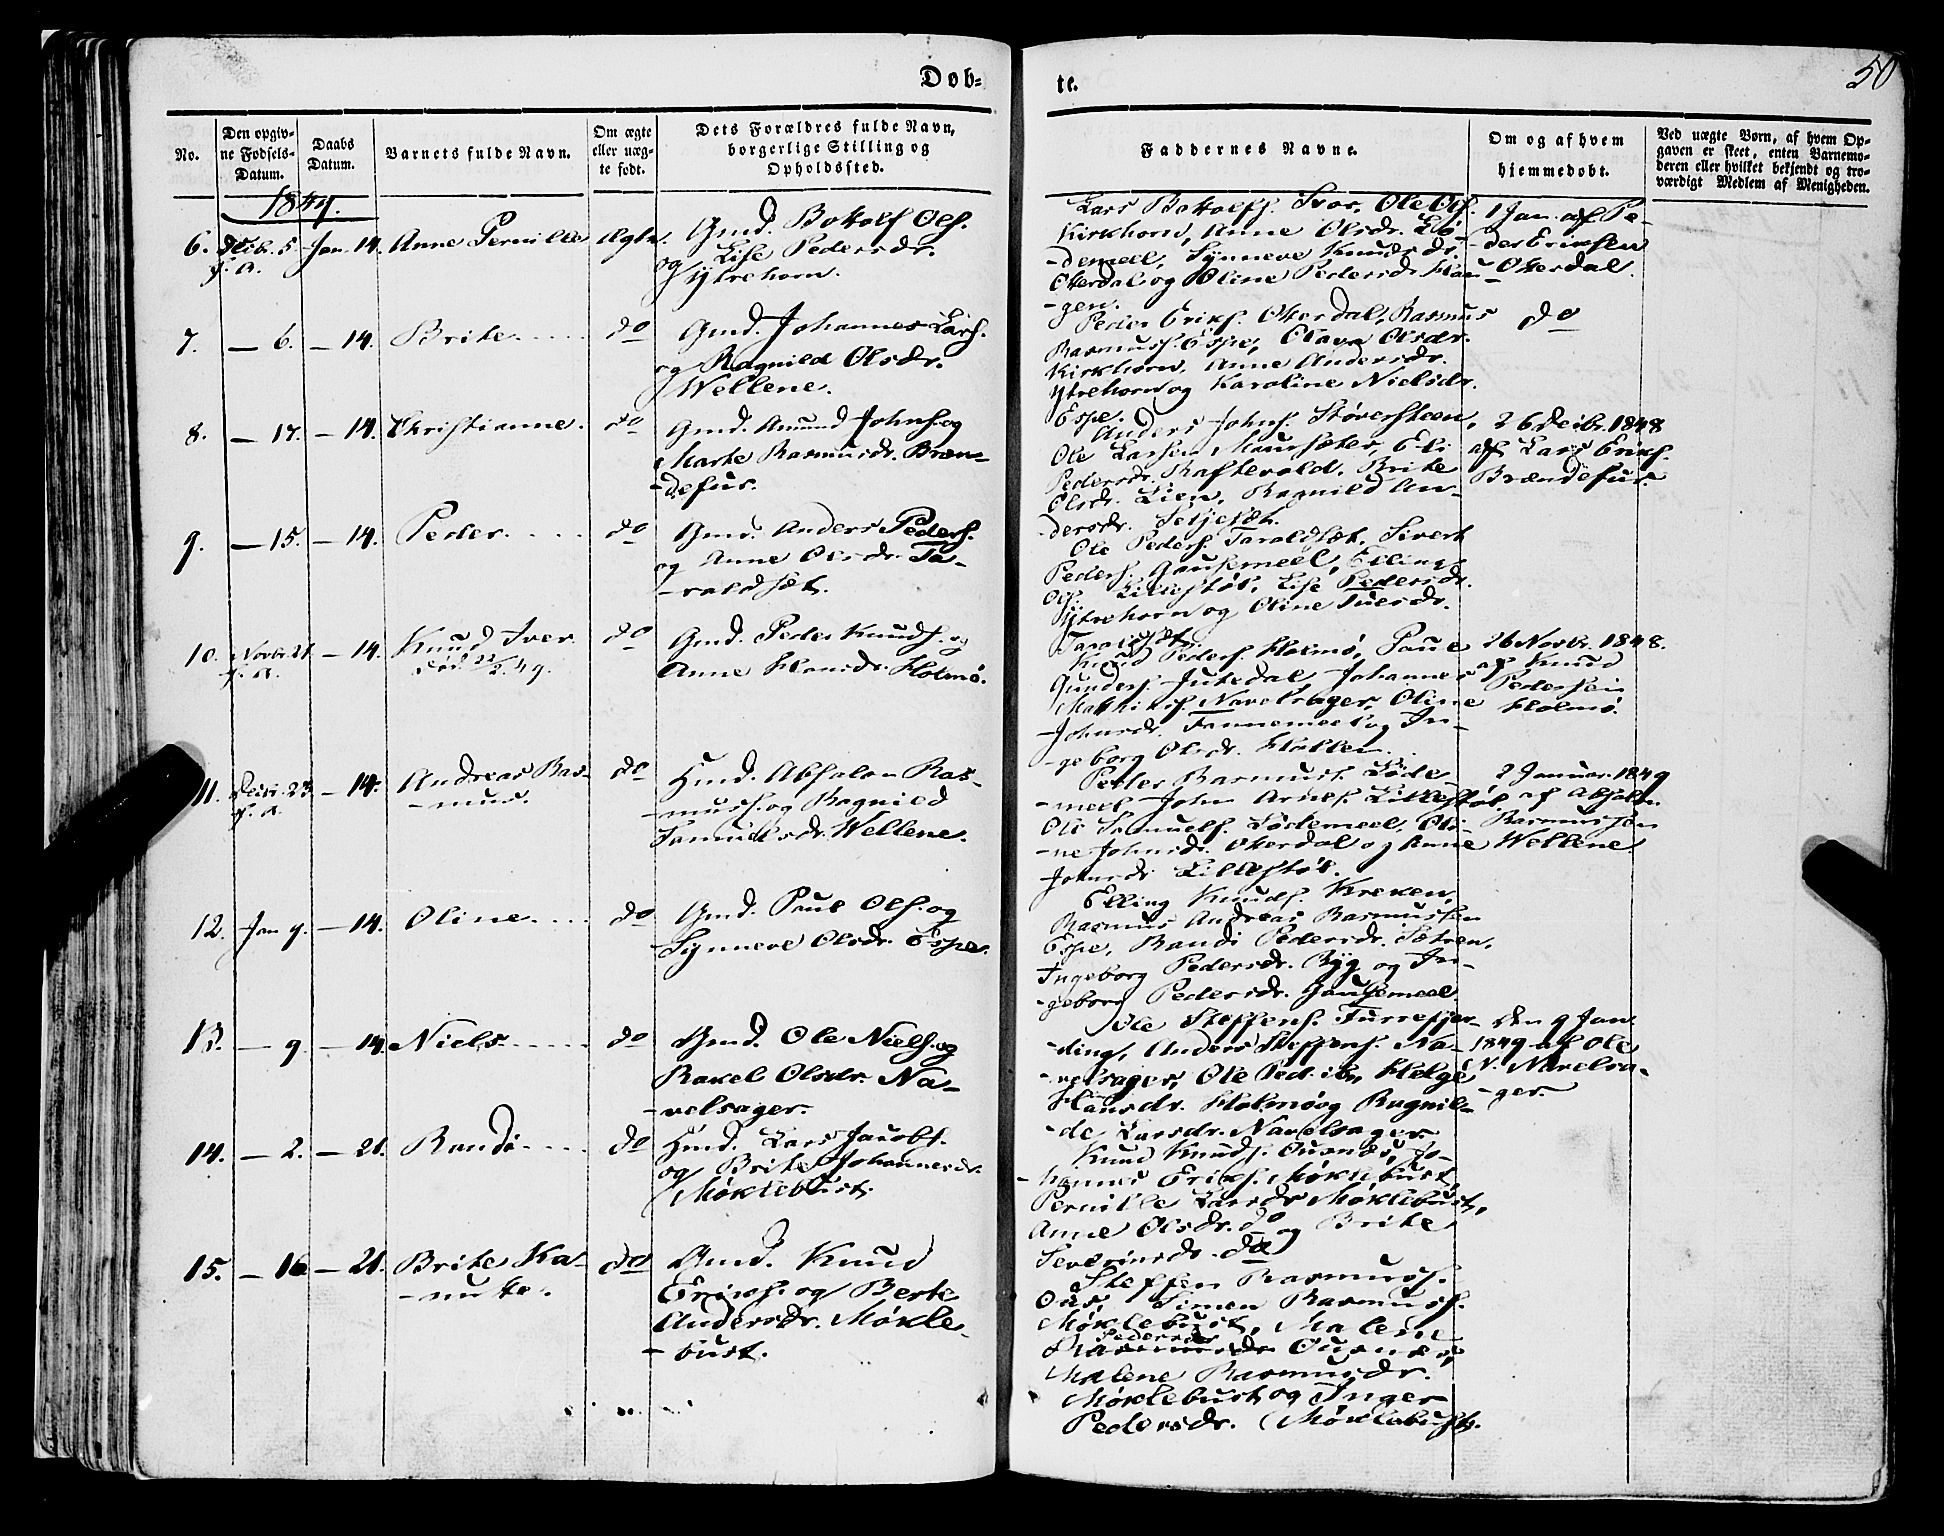 Døb=
te.
50
No.
Den opgiv-
ne Fødsels-
Datum.
Daabs
Datum.
Barnets fulde Navn.
Om ægte
eller uæg-
te født.
Dets Forældres fulde Navn,
borgerlige Stilling og
Opholdssted.
Faddernes Navne.
Om og af hvem
hjemmedøbt.
Ved uægte Børn, af hvem Op-
gaven er skeet, enten Barnemo-
deren eller hvilket bekjendt og tro-
værdigt Medlem af Menigheden.
1849.
6. Decb. 5 Jan. 14. Anne Pernille Ægte.
f. A.
Gmd. Bottolf Ols.
og Lise Pedersdr.
Ytrehorn.
Lars Bottolfs. Ole Ols.
Kirkhorn, Anne Olsdr. Lø-
-demeel, Synneve Knudsdr.
Oterdal og Oline Pedersdr. Hau-
-gen.
1 Jan. af Pe-
-der Eriksen
Oterdal.
7. — 6. — 14. Brite..... do
Gmd. Johannes Lars.
og Ragnild Olsdr.
Wellene.
Peder Eriks. Oterdal, Rasmus
Rasmuss. Espe, Olava Olsdr.
Kirkhorn, Anne Andersdr.
Ytrehorn og Karoline Nielsdr.
Espe.
do
8. — 17. — 14. Christianne. do
Gmd. Amund Johns. og
Marte Rasmusdr. Bræn-
-defur.
Anders Johns. Støversteen,
Ole Larsen Maursæter, Eli
Pedersdr. Raftevold. Brite
Olsdr. Lien, Ragnild An-
dersdr. Seljesæt.
26 Decbr. 1848
af Lars Eriks.
Brændefur.
9. — 15. — 14. Peder..... do
Gmd. Anders Peders.
og Anne Olsdr. Ta-
-raldsæt.
Ole Peders. Taraldsæt, Sivert
Peders. Gausemeel, Elling
Ols. Lillestøl, Lise Pedersdr.
Ytrehorn og Oline Tuesdr.
Taraldsæt.
10. Novbr. 21 — 14. Knud Iver do
f. A.
død 22/2. 49.
Gmd. Peder Knuds. og
Anne Hansdr. Holmø.
Knud Peders. Holmø, Paul
Gunders. Jutedal Johannes
Mathias. Navelsager, Oline
Johnsdr. Tannemeel og In-
-geborg Olsdr. Hatlen.
26 Novbr. 1848.
af Knud
Pedersen
Holmø.
11. Decbr. 23. — 14. Andreas Ras- do
f. A.
-mus.
Hmd. Absalon Ras-
-muss. og Ragnild
Samuelsdr. Wellene.
Peder Rasmuss. Løde-
-meel John Arnes. Lillestøl.
Ole Samuels. Lødemeel, Oli-
-ne Johnsdr. Oterdal og Anne
Johnsdr. Lillestøl.
2 Januar 1849
af Absalon
Rasmussen
Wellene
12. Jan 9. — 14. Oline.... do
Gmd. Paul Ols. og
Synneve Olsdr. Espe.
Elling Knuds. Kreken,
Rasmus Andreas Rasmussen
Espe, Randi Pedersdr. Sætren,
Ingeborg Pedersdr. Ryg og In-
-geborg Pedersdr. Gausemeel.
13. — 9. — 14 Niels..... do
Gmd. Ole Niels. og
Rakel Olsdr. Na-
-velsager.
Ole Steffens. Furrefjor-
-ding, Anders Steffens. Na-
-velsager, Ole Ped. ibn Helge
Hansdr. Holmø og Ragnil-
-de Larsdr. Navelsager
den 9 Jan
1849 af Ole
N. Navelsa-
-ger.
14. — 2. — 21. Randi.... do
Hmd. Lars Jacobs.
og Brite Johannesdr.
Møklebust.
Knud Knuds. Ousnes, Jo-
-hannes Eriks. Møklebust,
Pernille Larsdr Møklebust,
Anne Olsdr. do og Brite
Severinsdr. do
15. — 16 — 21. Brite Ka- do
-nutte.
Gmd. Knud
Eriks. og Berte
Andersdr. Møkle-
-bust.
Steffen Rasmuss.
Ous, Simen Rasmuss.
Møklebust, Malene
Pedersdr
Rasmusdr Ousnes,
Malene Rasmusdr.
Møklebust og Inger
Pedersdr. Møklebust.